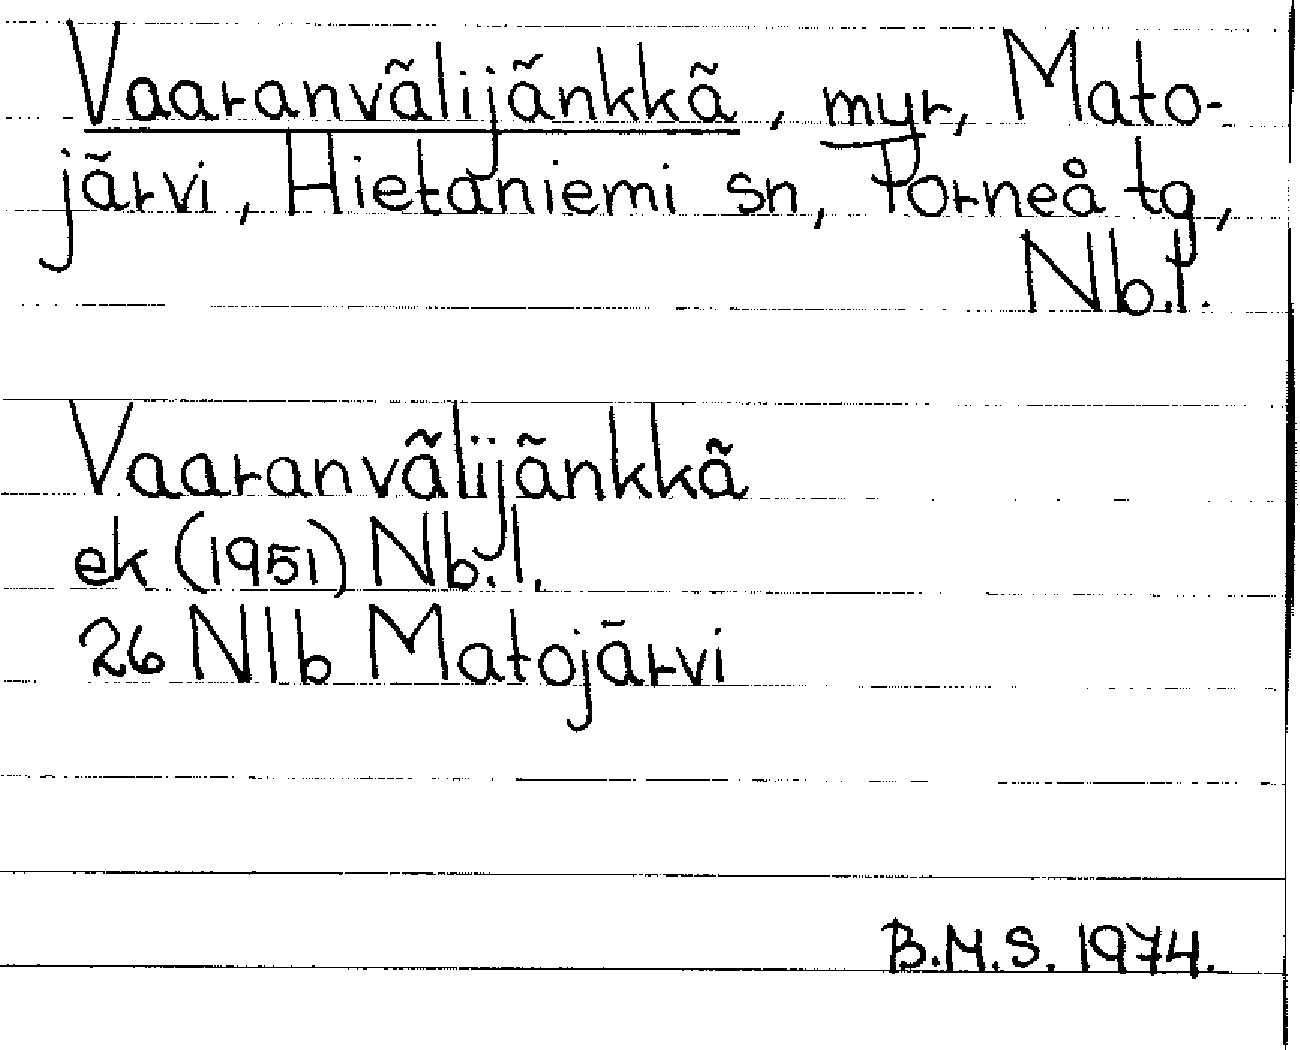 Vaaranvälijänkkä, myr, Mato-
järvi, Hietaniemi sn, Torneå tg,
Nb.l.
Vaaranvälijänkkä
ek (1951) Nb.l.
26 Nlb Matojärvi
B.M.S. 1974.